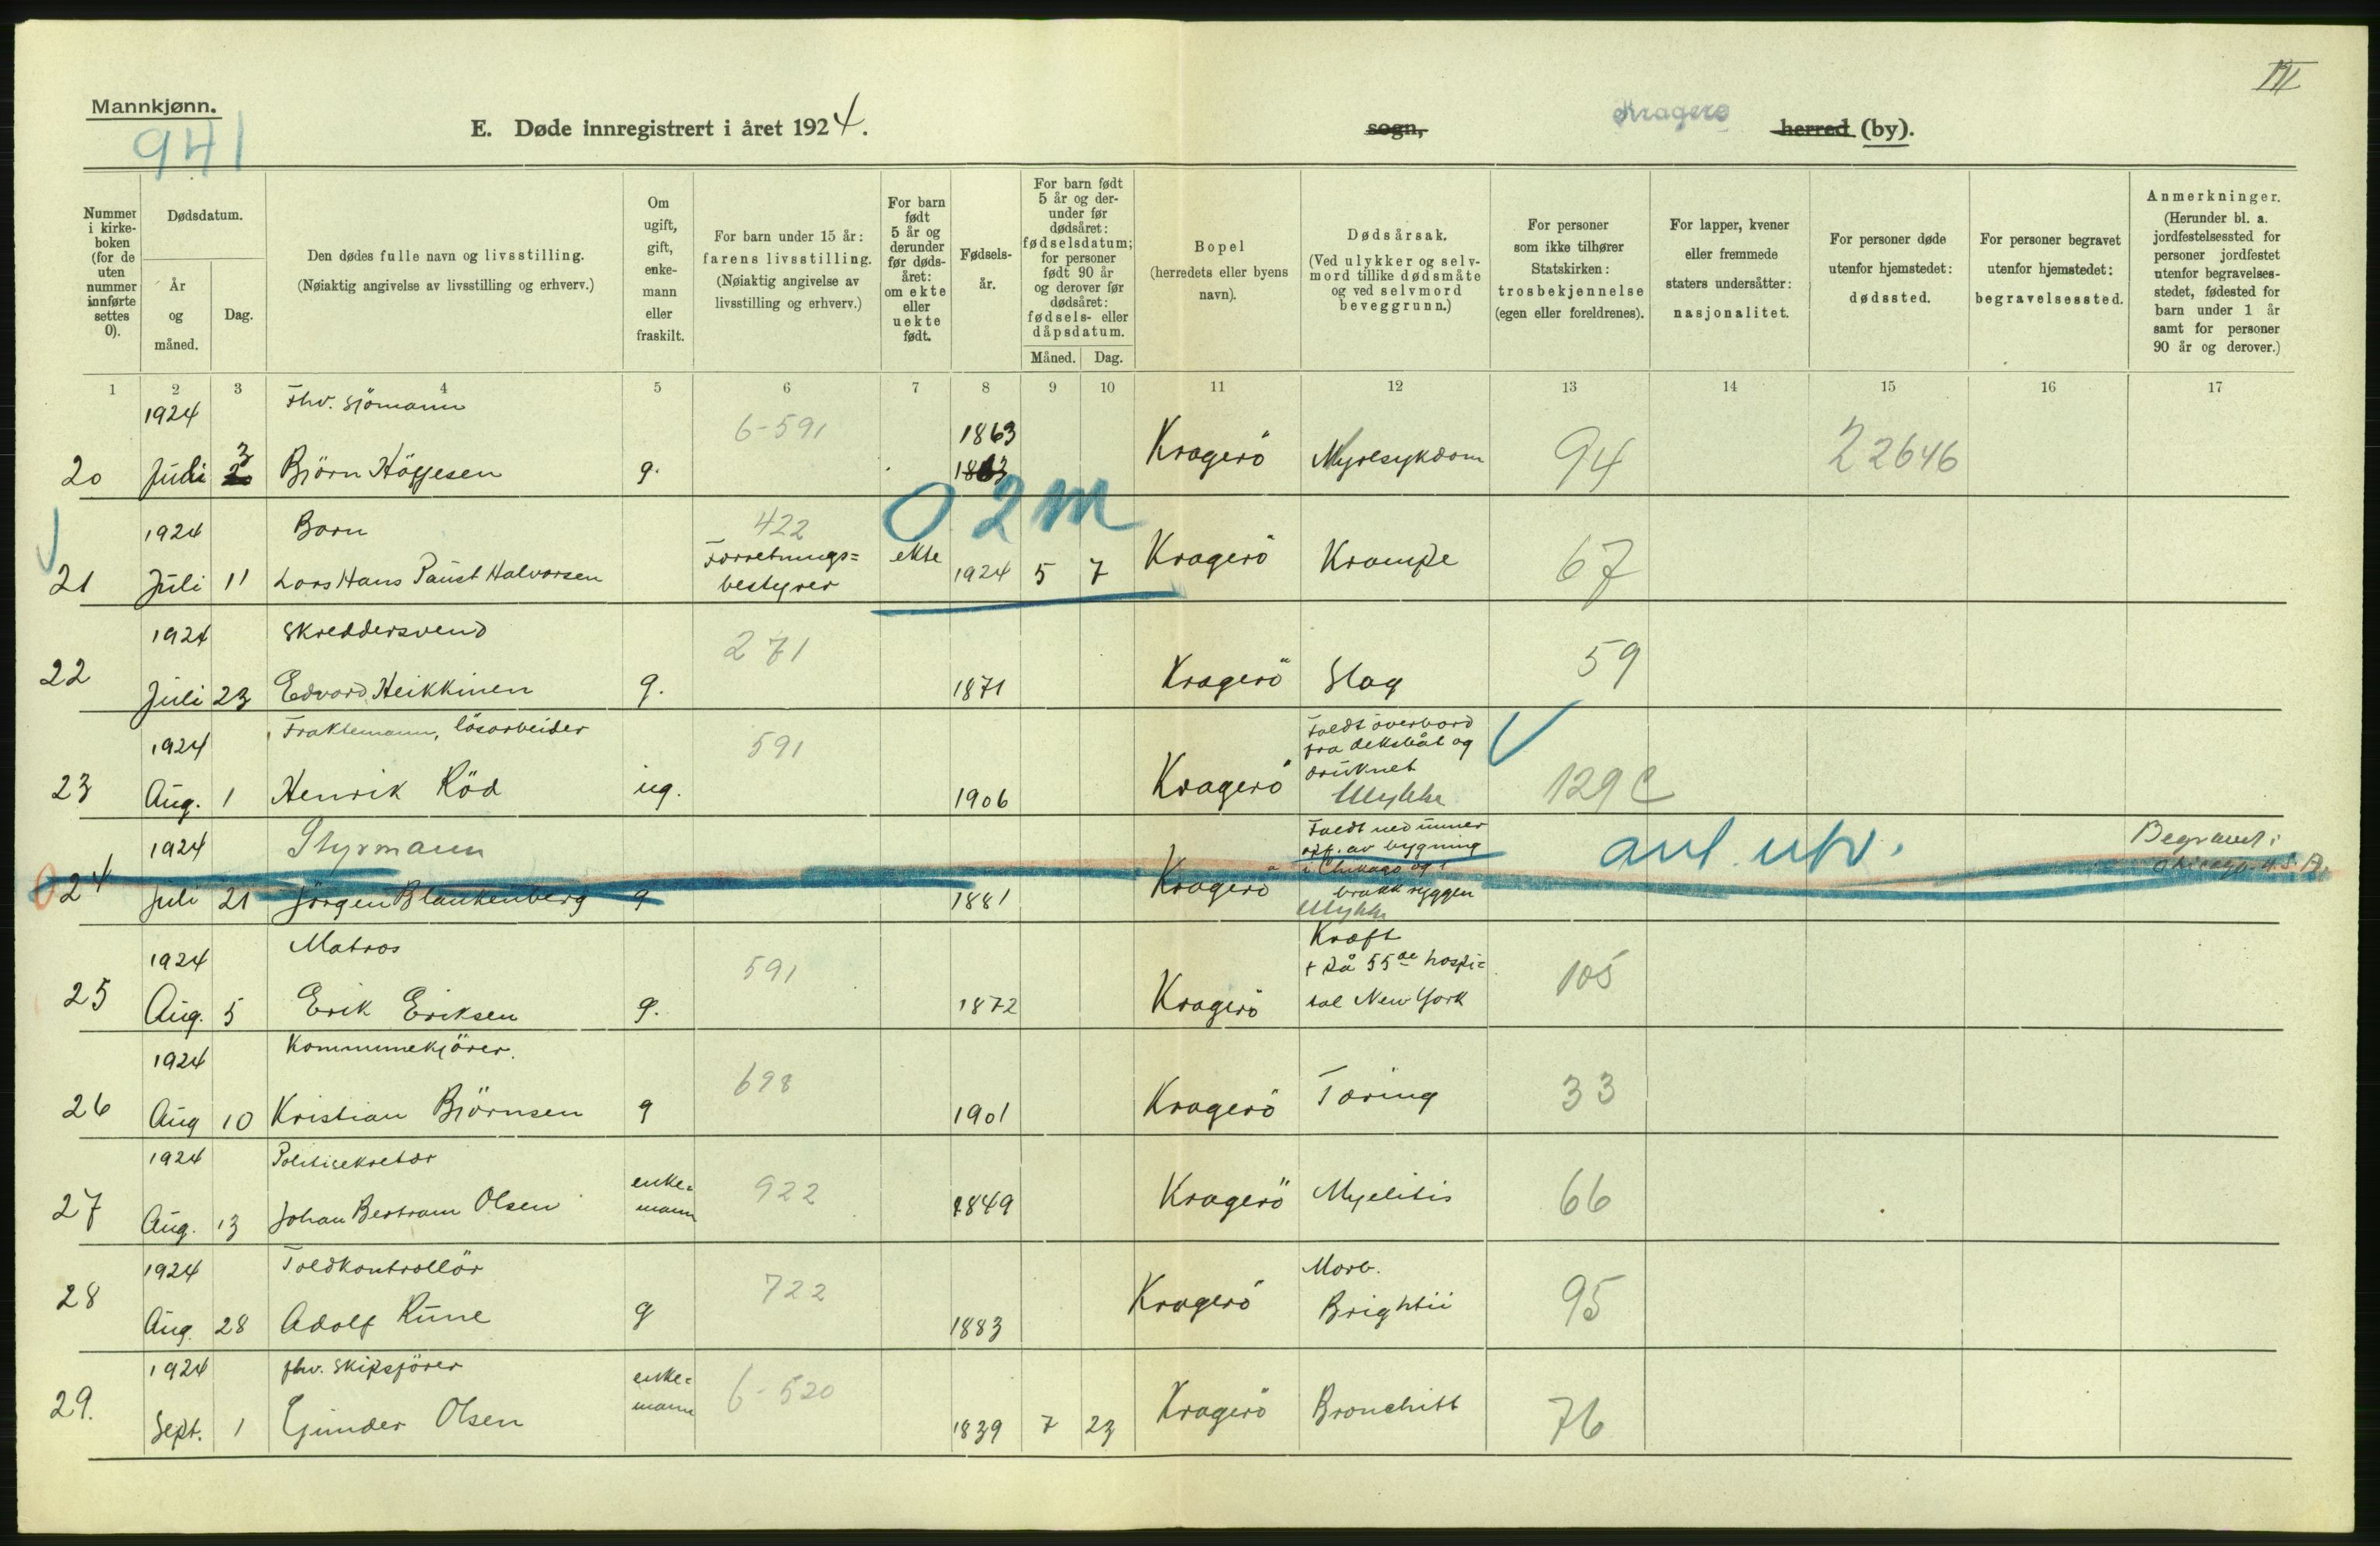 III
Mannkjønn.
941
E. Døde innregistrert i året 1924.
sogn,
Kragerø
herred (by).
Nummer i kirke-boken (for de uten nummer innførte settes 0).
Dødsdatum.
År og måned.
Dag.
Den dødes fulle navn og livsstilling.
(Nøiaktig angivelse av livsstilling og erhverv.)
Om ugift, gift, enke-mann eller fraskilt.
For barn under 15 år:
farens livsstilling.
(Nøiaktig angivelse av livsstilling og erhverv.)
For barn født 5 år og derunder før døds-året: om ekte eller uekte født.
Fødsels-år.
For barn født 5 år og der-under før dødsåret: fødselsdatum; for personer født 90 år og derover før dødsåret: fødsels- eller dåpsdatum.
Måned.
Dag.
Bopel
(herredets eller byens navn).
Dødsårsak.
(Ved ulykker og selv-mord tillike dødsmåte og ved selvmord beveggrunn.)
For personer som ikke tilhører Statskirken: trosbekjennelse (egen eller foreldrenes).
For lapper, kvener eller fremmede staters undersåtter: nasjonalitet.
For personer døde utenfor hjemstedet: dødssted.
For personer begravet utenfor hjemstedet: begravelsessted.
Anmerkninger.
(Herunder bl. a. jordfestelsessted for personer jordfestet utenfor begravelses-stedet, fødested for barn under 1 år samt for personer 90 år og derover.)
1 2 3 4 5 6 7 8 9 10 11 12 13 14 15 16 17
1924 Fhv. Sjömann 6-591 1863
20 Juli 3 Björn Höyesen g. 1863 Kragerö Nyresykdom 94 22646
0 2 m
1924 Barn 422
21 Juli 11 Lars Hans Paust Halvorsen Forretnings=
bestyrer ekte 1924 5 7 Kragerö Krampe 67
1924 Skreddersvend 271
22 Juli 23 Edvard Heikkinen g. 1871 Kragerö Slag 59
1924 Fraktemann, lösarbeider 591 Faldt overbord
fra dekksbåt og
druknet
23 Aug. 1 Henrik Röd ug. 1906 Kragerö Ulykke 129 C
1924 Styrmann Faldt ned
av bygning
i Chikago og
brakk ryggen
024 Juli 21 Jörgen Blankenberg g 1881 Kragerö Ulykke ant. utv. Begravet i
Chicago. U.S.A.
1924 Matros 591 Kræft
+ På 55de hospi=
tal New York
25 Aug. 5 Erik Eriksen g. 1872 Kragerö 105
1924 Kommunekjörer. 698
26 Aug 10 Kristian Björnsen g 1901 Kragerö Tæring 33
1924 Politisekretær enke=
mann 922
27 Aug. 13 Johan Bertram Olsen 1849 Kragerö Myelitis 66
1924 Toldkontrollör 722 Morb.
28 Aug. 28 Adolf Rune g 1883 Kragerö Brightii 95
1924 fhv. Skipsförer enke=
mann 6-520
29. Sept. 1 Gunder Olsen 1839 7 23 Kragerö Bronchitt 76